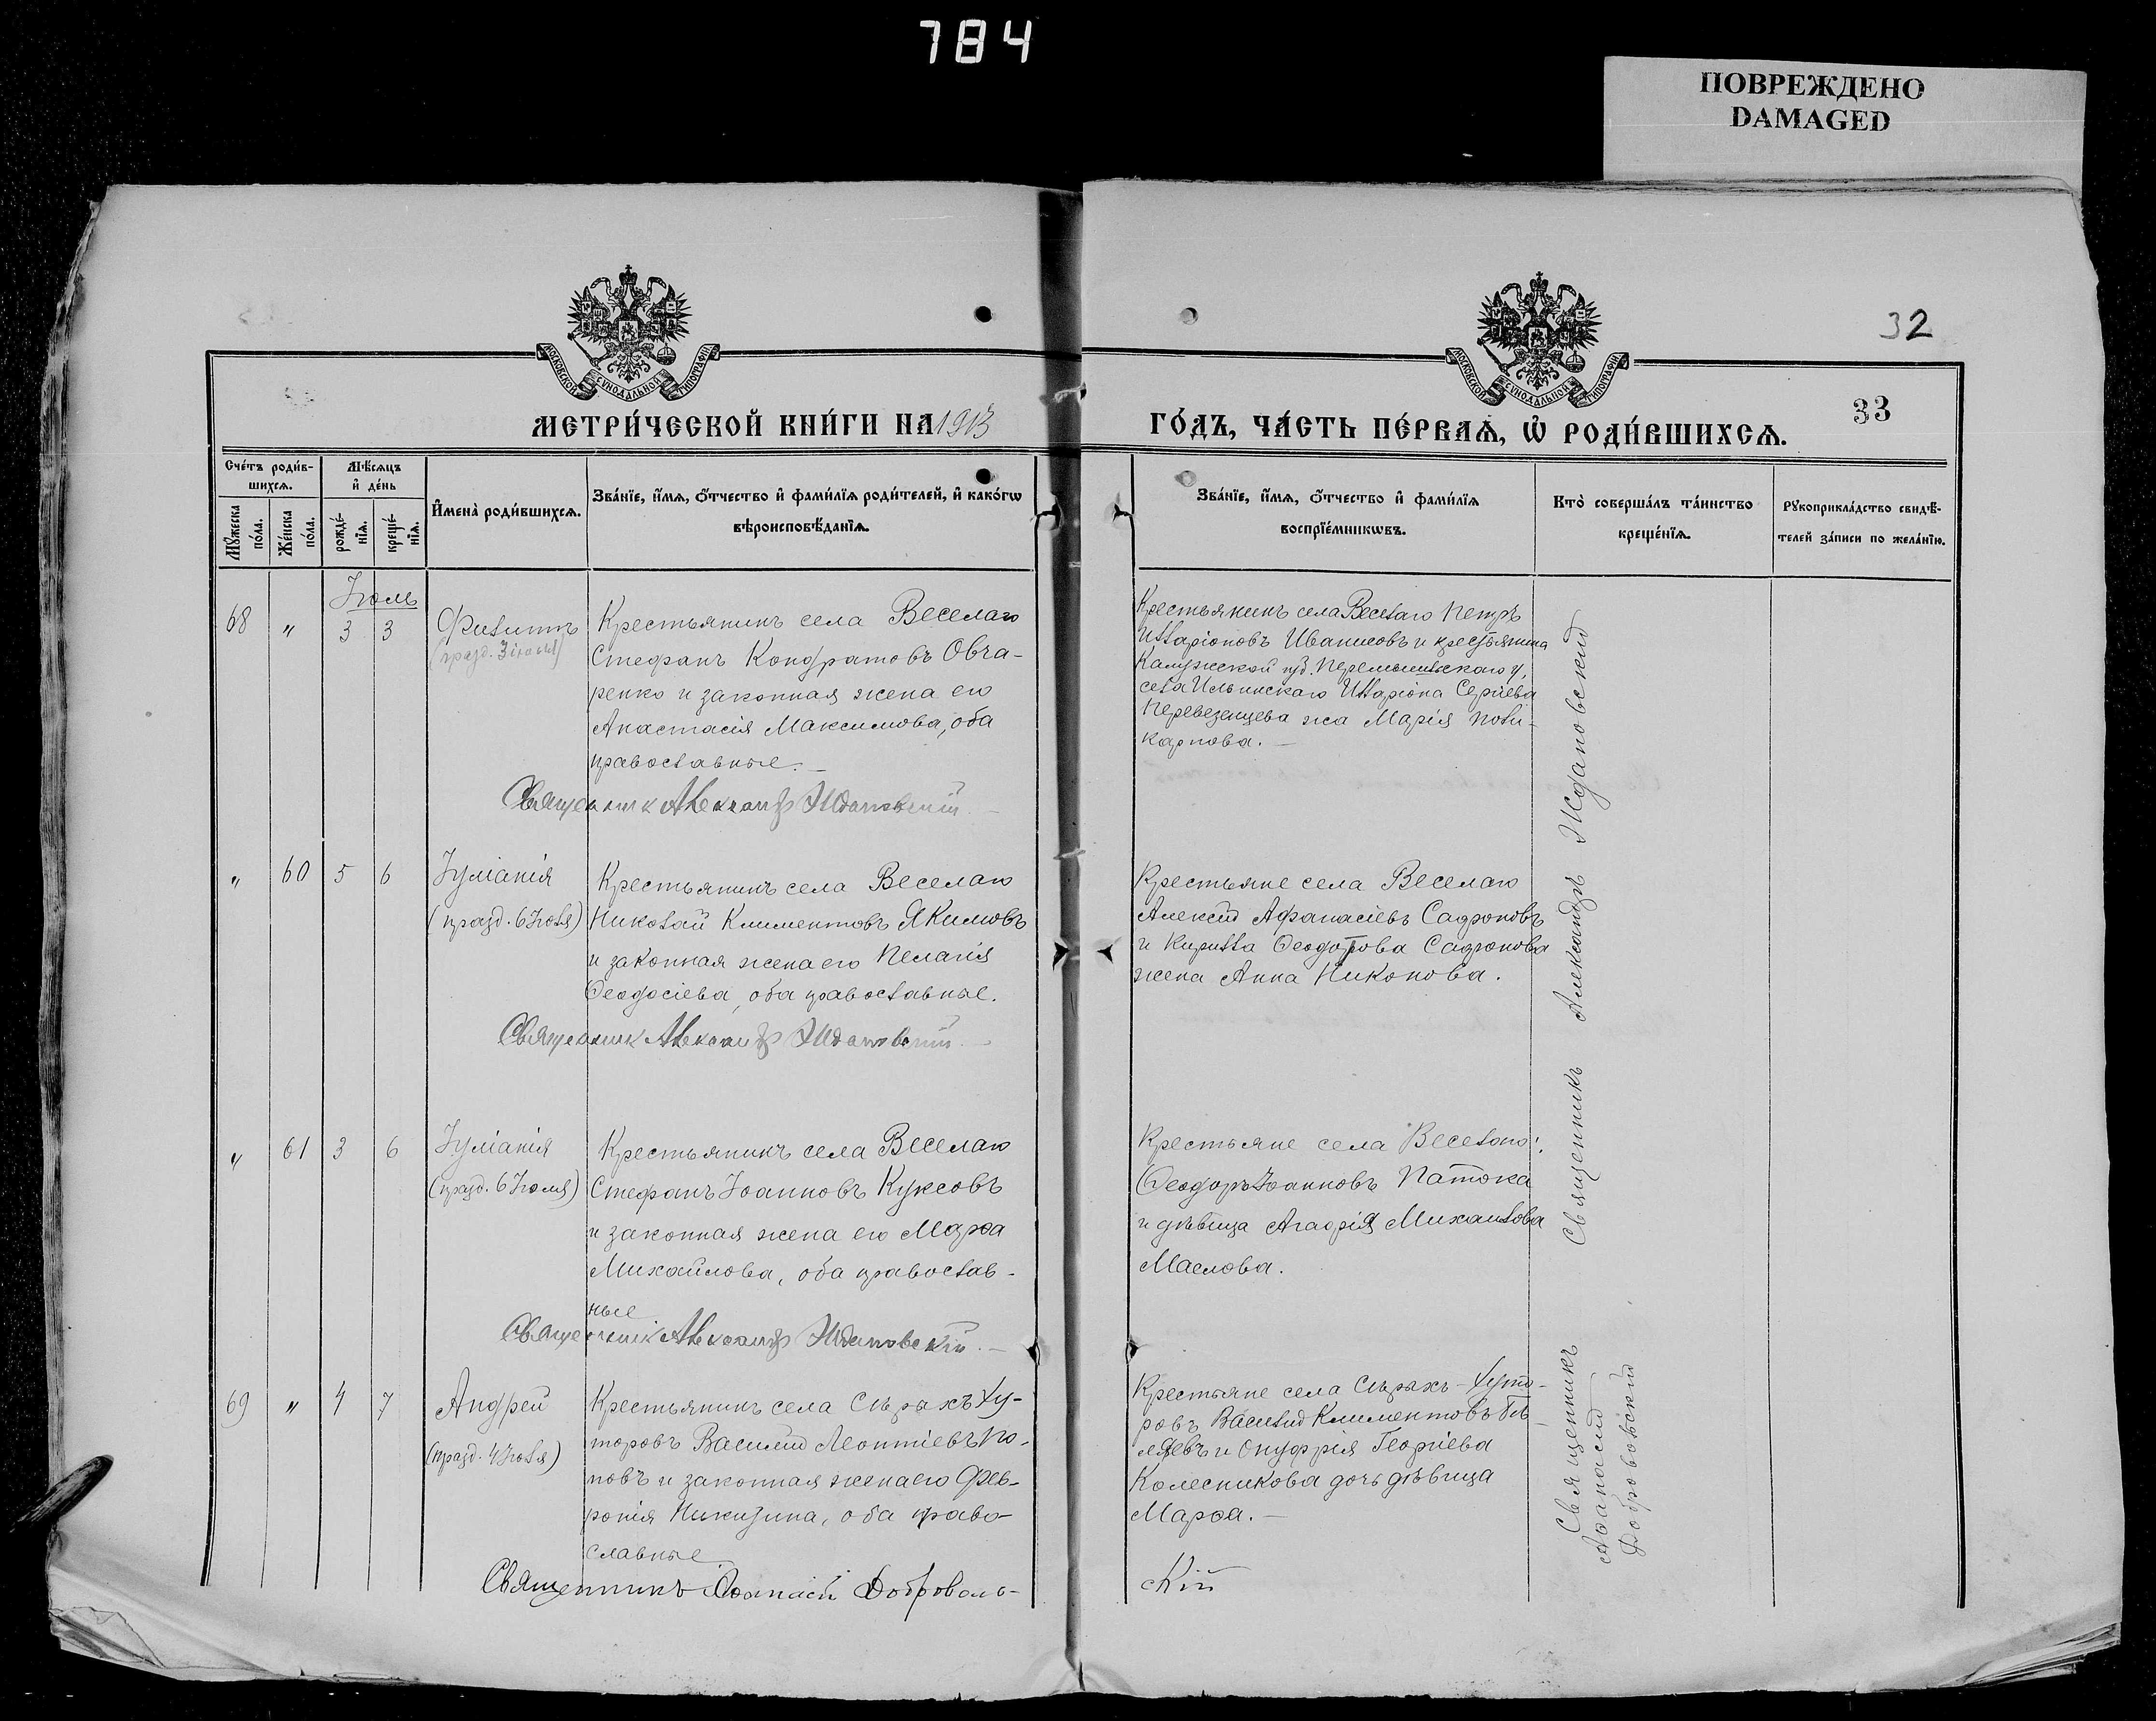 784
ПОВРЕЖДЕНО
DAMAGED
32
33
МОСКОВСКОЙ СУНОДАЛЬНОЙ ТИПОГРАФІИ
МОСКОВСКОЙ СУНОДАЛЬНОЙ ТИПОГРАФІИ
МЕТРИ́ЧЕСКОЙ КНИ́ГИ НА 1913
ГО́ДЪ, ЧА́СТЬ ПЕ́РВАѦ, Ѡ҆ РОДИ́ВШИХСѦ.
Сче́тъ роди́в-
шихсѧ.
Мѣ́сѧцъ
и҆ де́нь
Мꙋ́жеска
по́ла.
Же́нска
по́ла.
рожде́-
нїѧ.
креще́-
нїѧ.
И҆мена̀ роди́вшихсѧ.
Зва́нїе, и҆́мѧ, ѻ҆́тчество и҆ фами́лїѧ роди́телей, и҆ како́гѡ
вѣроисповѣ́данїѧ.
Зва́нїе, и҆́мѧ, ѻ҆́тчество и҆ фами́лїѧ
воспрїе́мникѡвъ.
Кто̀ соверша́лъ та́инство
креще́нїѧ.
Рꙋкоприкла́дство свидѣ́-
телей за́писи по жела́нїю.
Іюль
68 " 3 3
Филиппъ
(празд. 3 іюля)
Крестьянинъ села Веселаго
Стефанъ Кондратовъ Овча-
ренко и законная жена его
Анастасія Максимова, оба
православные.
Священник Александр Ждановский
Крестьянинъ села Веселаго Петръ
Илларіоновъ Иванисовъ и крестьянина
Калужской губ. Перемышльскаго у,
села Ильинскаго Илларіона Сергіева
Перевезенцева жа Марія Поли-
карпова.
" 60 5 6
Іуліанія
(празд. 6 Іюля)
Крестьянинъ села Веселаго
Николай Климентовъ Якимовъ
и законная жена его Пелагія
Ѳеодосіева, оба православные.
Священник Александр Ждановский
Крестьяне села Веселаго
Алексѣй Афанасіевъ Сафроновъ
и Кирилла Ѳеодорова Сафронова
жена Анна Никонова.
" 61 3 6
Іуліанія
(празд. 6 Іюля)
Крестьянинъ села Веселаго
Стефанъ Іоанновъ Куксовъ
и законная жена его Марѳа
Михайлова, оба православ-
ные
Священник Александр Ждановскій
Крестьяне села Веселаго:
Ѳеодоръ Іоанновъ Патока
и дѣвица Агафія Михаилова
Маслова.
Священникъ Александръ Ждановскій
69 " 4 7
Андрей
(празд. 4 Іюля)
Крестьянинъ села Сѣрахъ Ху-
торовъ Василій Леонтіевъ По-
повъ и законная жена его Фев-
ронія Никитина, оба право-
славные
Священникъ Аѳанасій Доброволь-
скій
Крестьяне села Сѣрахъ-Хуто-
ровъ Василій Климентовъ Бѣ-
ляевъ и Онуфрія Георгіева
Колесникова дочь дѣвица
Марѳа.
Священникъ
Аѳанасій
Добровольскій